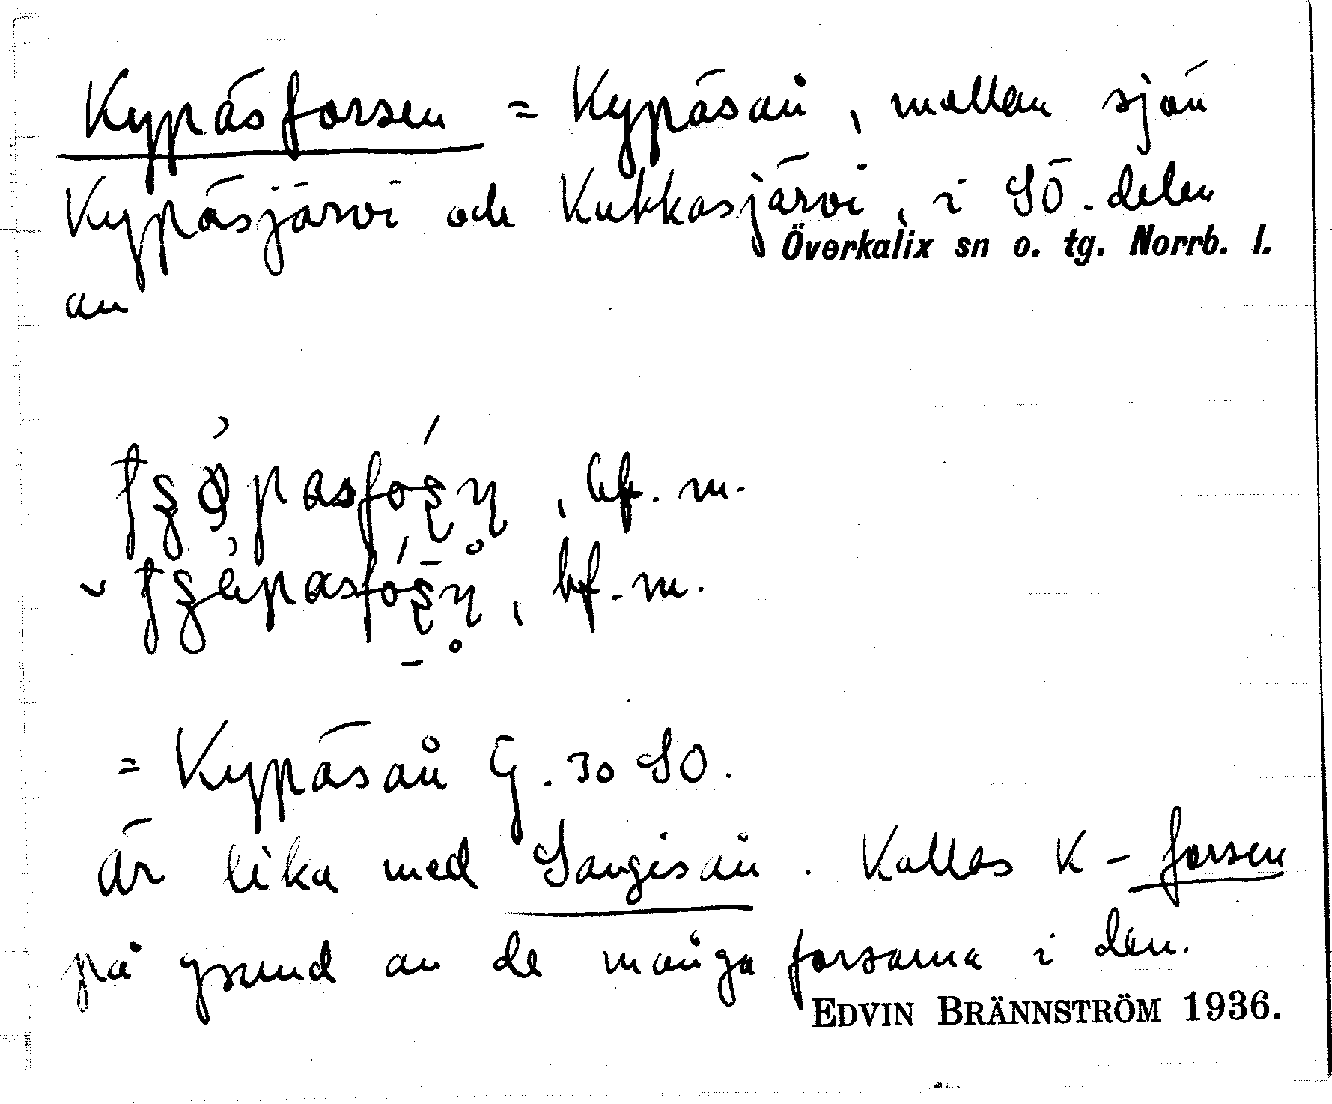 Kypäsforsen = Kypäsån, mellan sjön
Kypäsjärvi och Kukkasjärvi, i SÖ. delen
Överkalix sn o. tg. Norrb. l.
av
, bf. m.
, bf. m.
= Kypäsån G. 30 SO.
Är lika med Sangisån. Kallas K-forsen
på grund av de många forsarna i den.
EDVIN BRÄNNSTRÖM 1936.